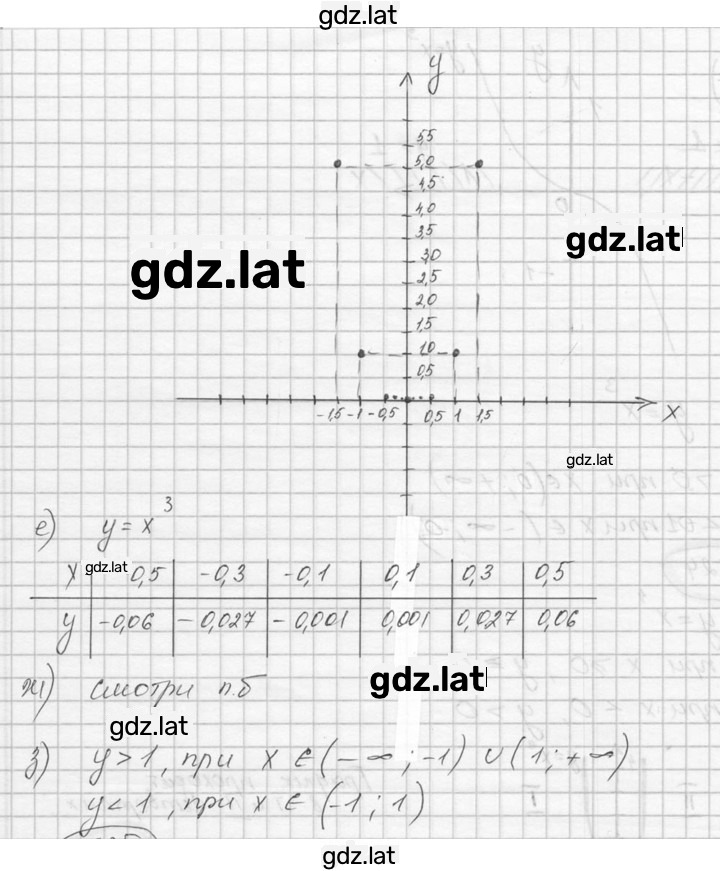 gdz.lat
y
5,5
5,0
4,5
4,0
gdz.lat
3,5
gdz.lat
3,0
2,5
2,0
1,5
1,0
0,5
-1,5 -1 -0,5 0,5 1 1,5 x
gdz.lat
е) y = x³
x gdz.lat 0,5 -0,3 -0,1 0,1 0,3 0,5
y -0,06 -0,027 -0,001 0,001 0,027 0,06
ж) смотри п.б
gdz.lat
gdz.lat
з) y > 1, при x ∈ (-∞; -1) ∪ (1; +∞)
y < 1, при x ∈ (-1; 1)
gdz.lat